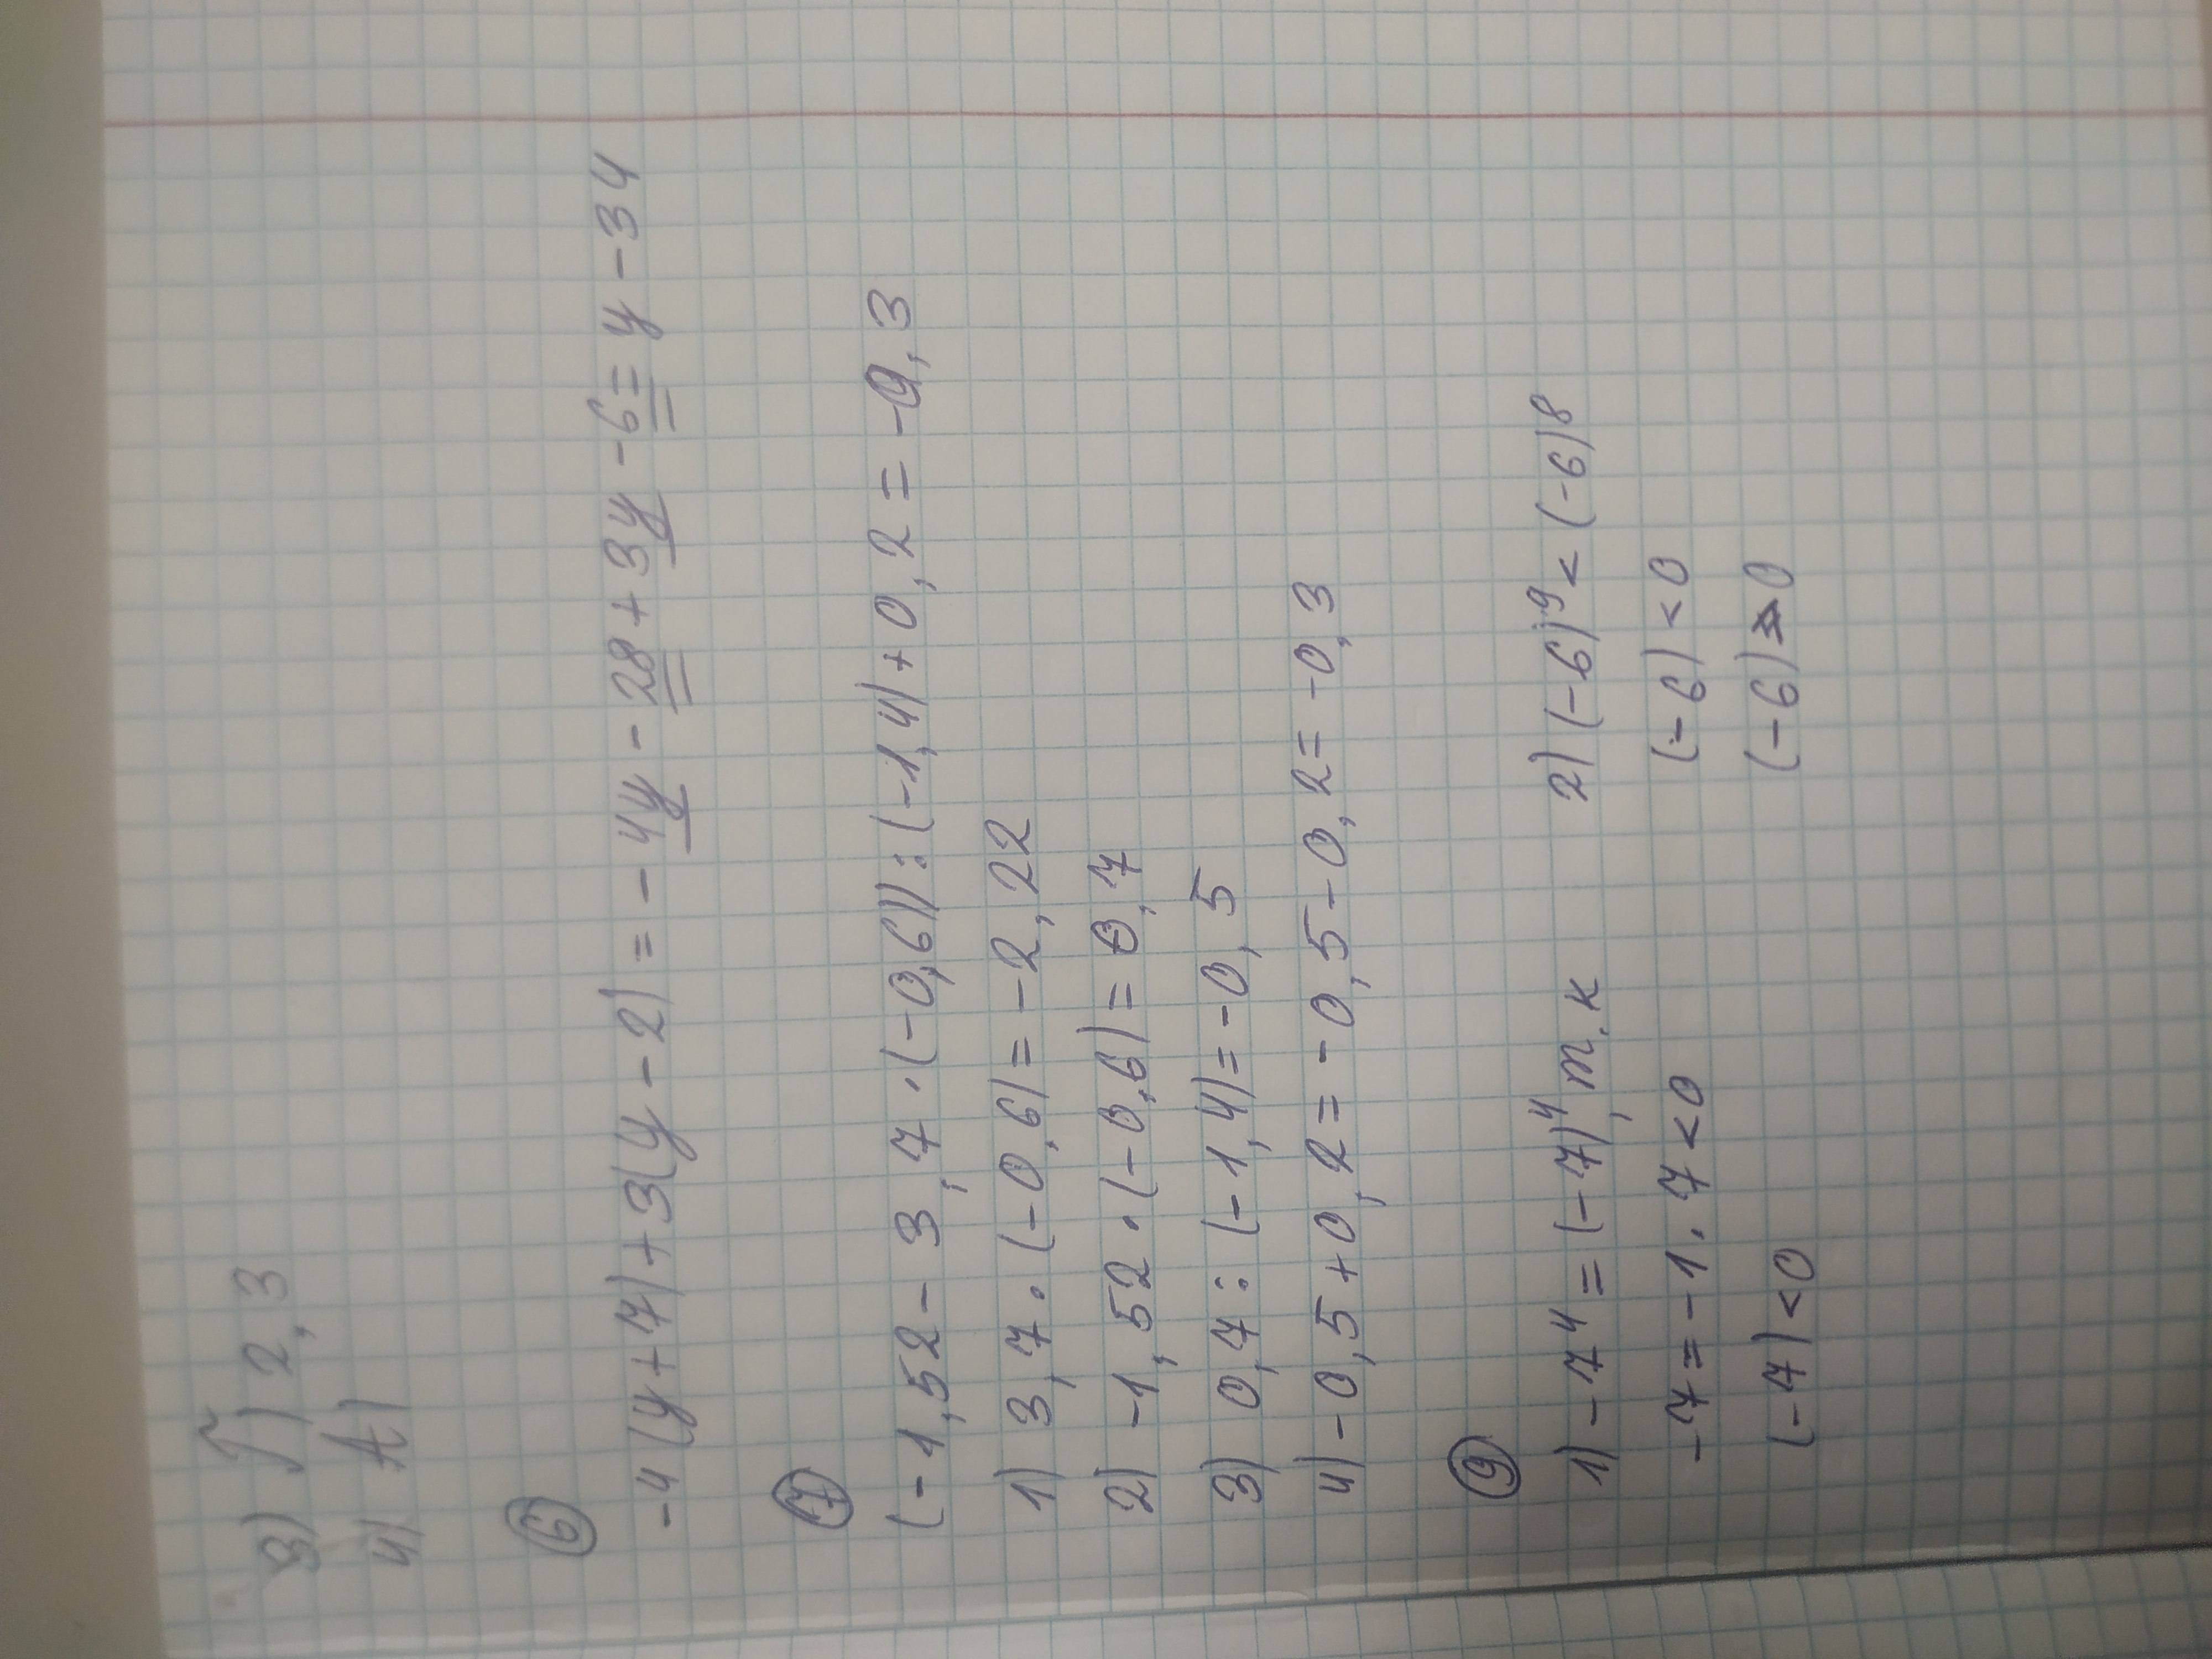 3) Г) 2,3
4) А)
6
-4(y+7)+3(y-2)=-4y-28+3y-6=y-34
7
(-1,52-3,7·(-0,6)):(-1,4)+0,2=-0,3
1) 3,7·(-0,6)=-2,22
2) -1,52·(-0,6)=0,7
3) 0,7:(-1,4)=-0,5
4) -0,5+0,2=-0,5-0,2=-0,3
9
1) -7⁴=(-7)⁴, т.к 2) (-6)⁹<(-6)8
-7=-1·7<0 (-6)<0
(-7)<0 (-6)>0